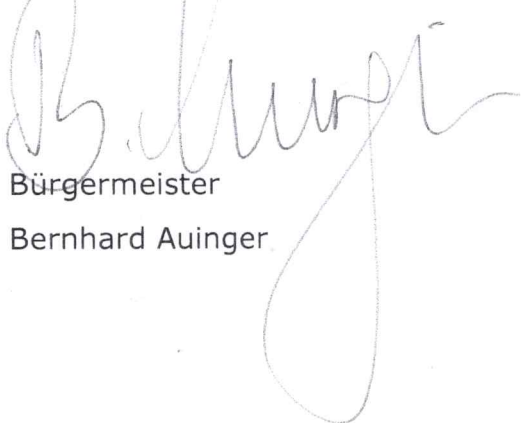 B. Auinger
Bürgermeister
Bernhard Auinger